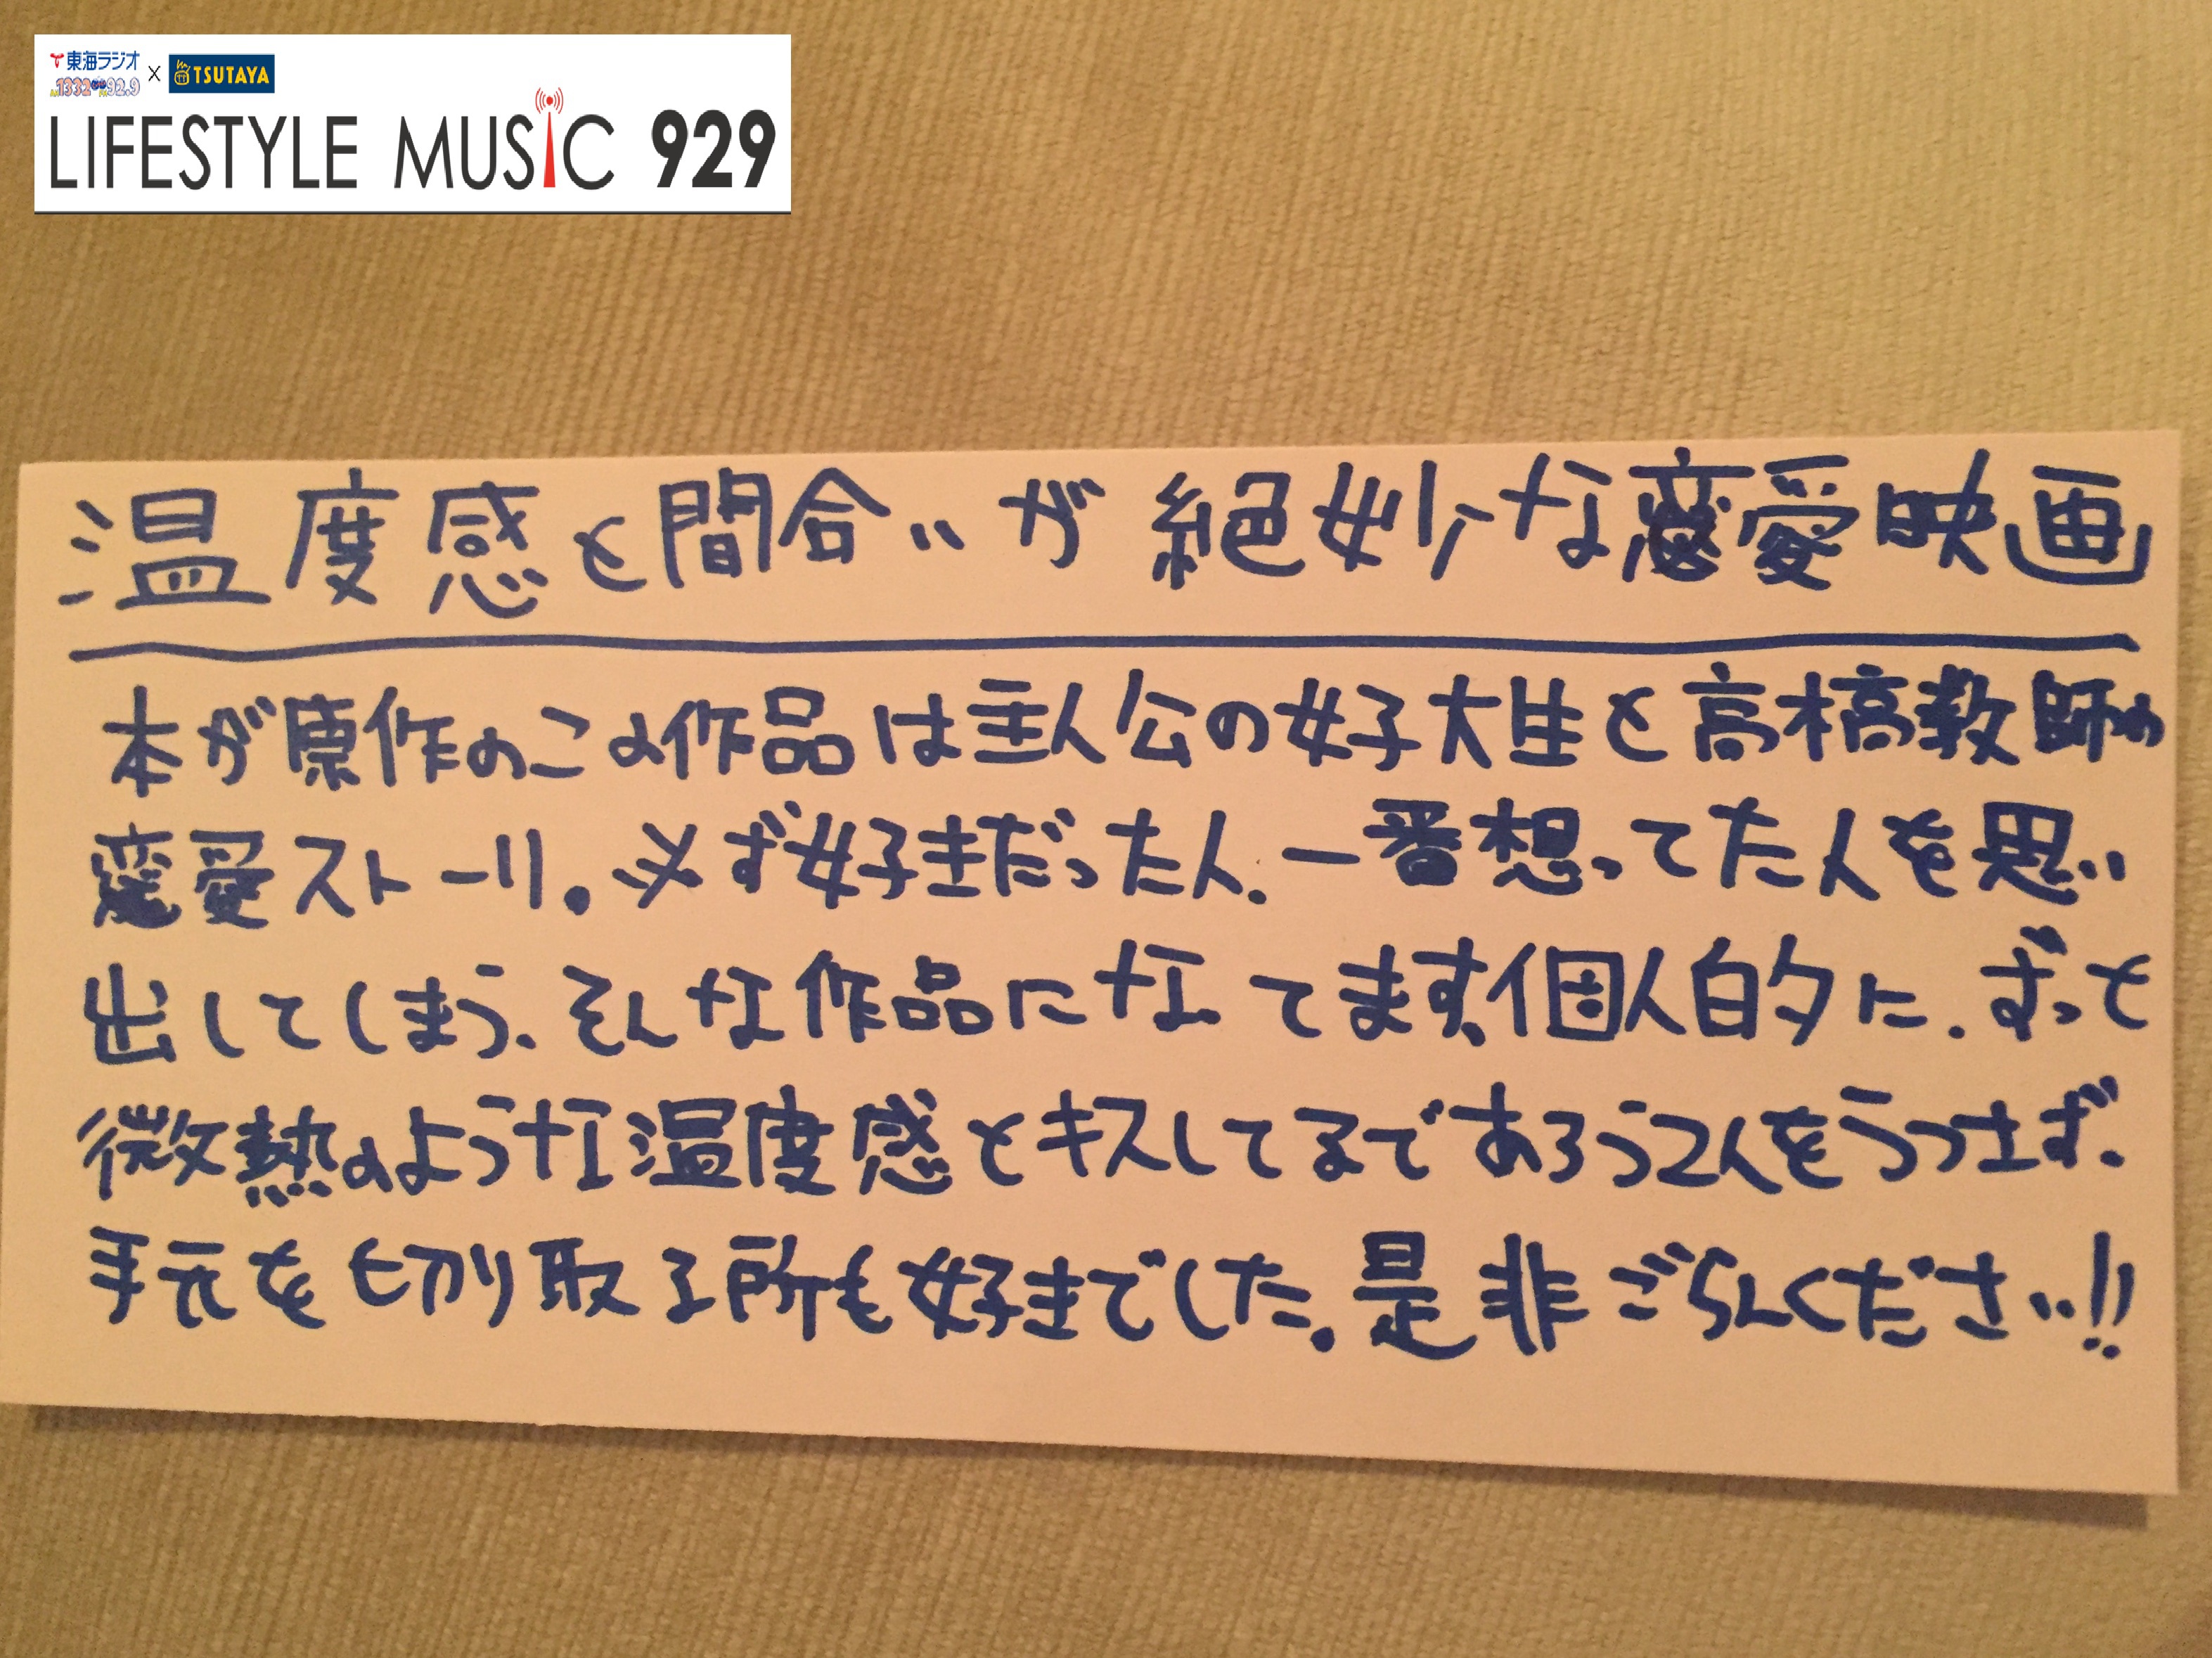 東海ラジオ
1332 92.9 × TSUTAYA
LIFESTYLE MUSIC 929
温度感と間合いが絶妙な恋愛映画
本が原作のこの作品は主人公の女子大生と高橋教師の
恋愛ストーリ。必ず好きだった人、一番想ってた人を思い
出してしまう、そんな作品になってます。個人的に、ずっと
微熱のような温度感とキスしてるであろう2人をうつさず、
手元を切り取る所も好きでした。是非ごらんください!!